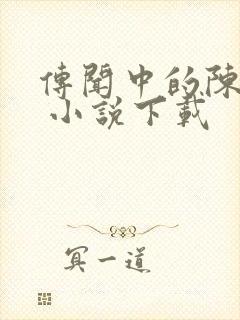 傳聞中的陳
小説下載
冥一道